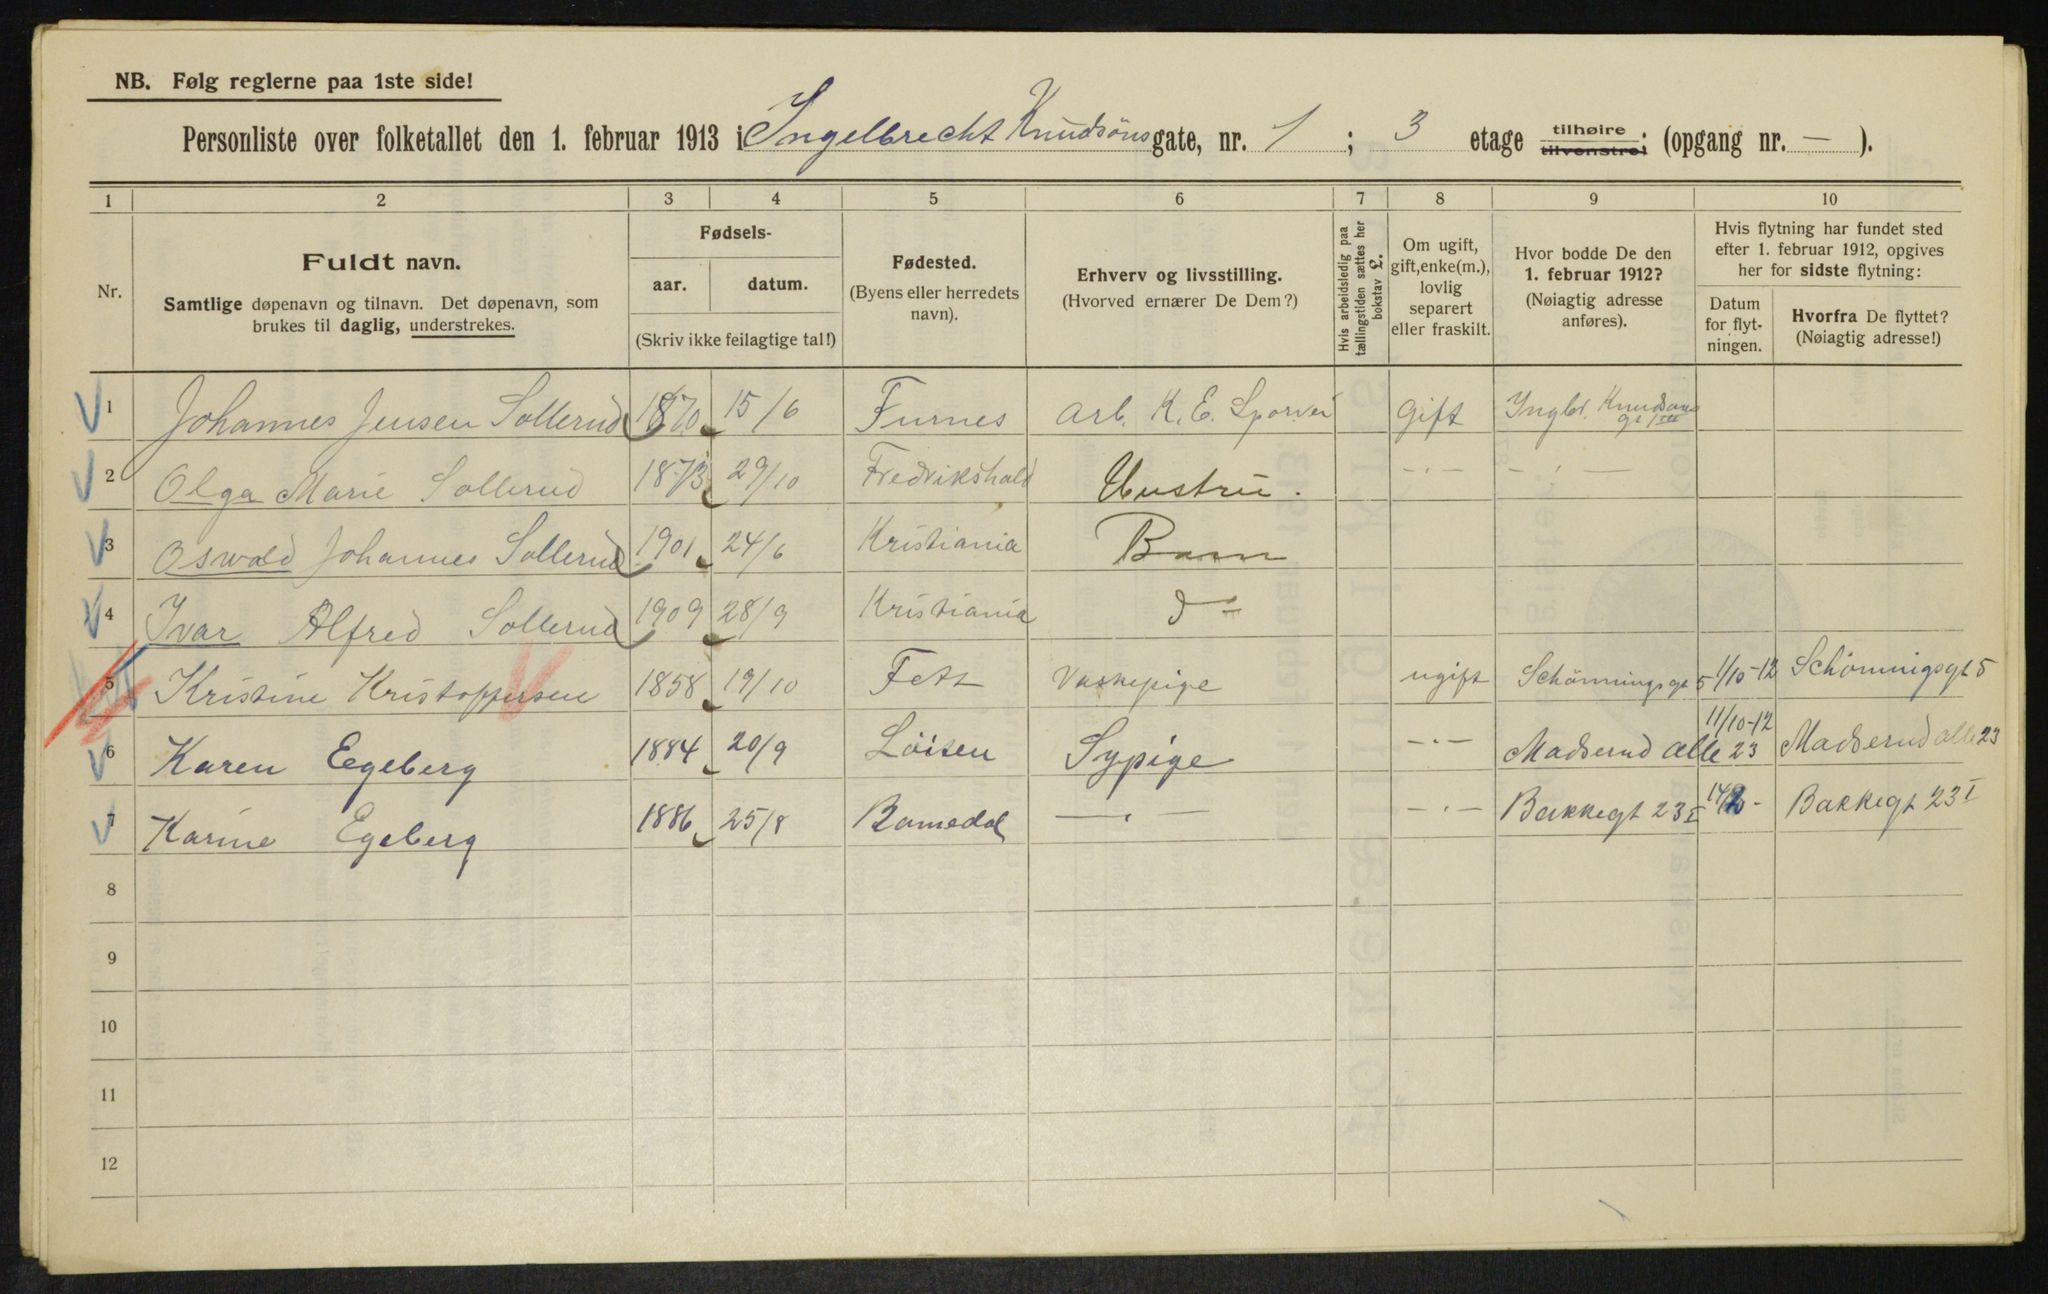 NB. Følg reglerne paa 1ste side!
Personliste over folketallet den 1. februar 1913 i Ingelbrecht Knudsöns gate, nr. 1 ; 3 etage tilhøire tilvenstre; (opgang nr. — ).
1 2 3 4 5 6 7 8 9 10
Nr.
Fuldt navn.
Samtlige døpenavn og tilnavn. Det døpenavn, som
brukes til daglig, understrekes.
Fødsels-
aar. datum.
(Skriv ikke feilagtige tal!)
Fødested.
(Byens eller herredets
navn).
Erhverv og livsstilling.
(Hvorved ernærer De Dem?)
Hvis arbeidsledig paa
tællingstiden sættes her
bokstav £.
Om ugift,
gift, enke(m.),
lovlig
separert
eller fraskilt.
Hvor bodde De den
1. februar 1912?
(Nøiagtig adresse
anføres).
Hvis flytning har fundet sted
efter 1. februar 1912, opgives
her for sidste flytning:
Datum
for flyt-
ningen.
Hvorfra De flyttet?
(Nøiagtig adresse!)
1 Johannes Jensen Sollerud 1870 15/6 Furnes Arb. K. E. Sporvei gift Ingbr. Knudsons gt 1 III
2 Olga Marie Sollerud 1873 29/10 Fredrikshald Hustru. —·— —·—
3 Oswald Johannes Sollerud 1901 24/6 Kristiania Barn
4 Ivar Alfred Sollerud 1909 28/9 Kristiania do
5 Kristine Kristoffersen 1858 19/10 Fett Vaskepige ugift Schönningsgt 5 1/10-12 Schönningsgt 5
6 Karen Egeberg 1884 20/9 Löiten Sypige —·— Madserud alle 23 11/10-12 Madserud alle 23
7 Karine Egeberg 1886 25/8 Romedal —·— —·— Bakkegt 23 I Bakkegt 23 I
8
9
10
11
12